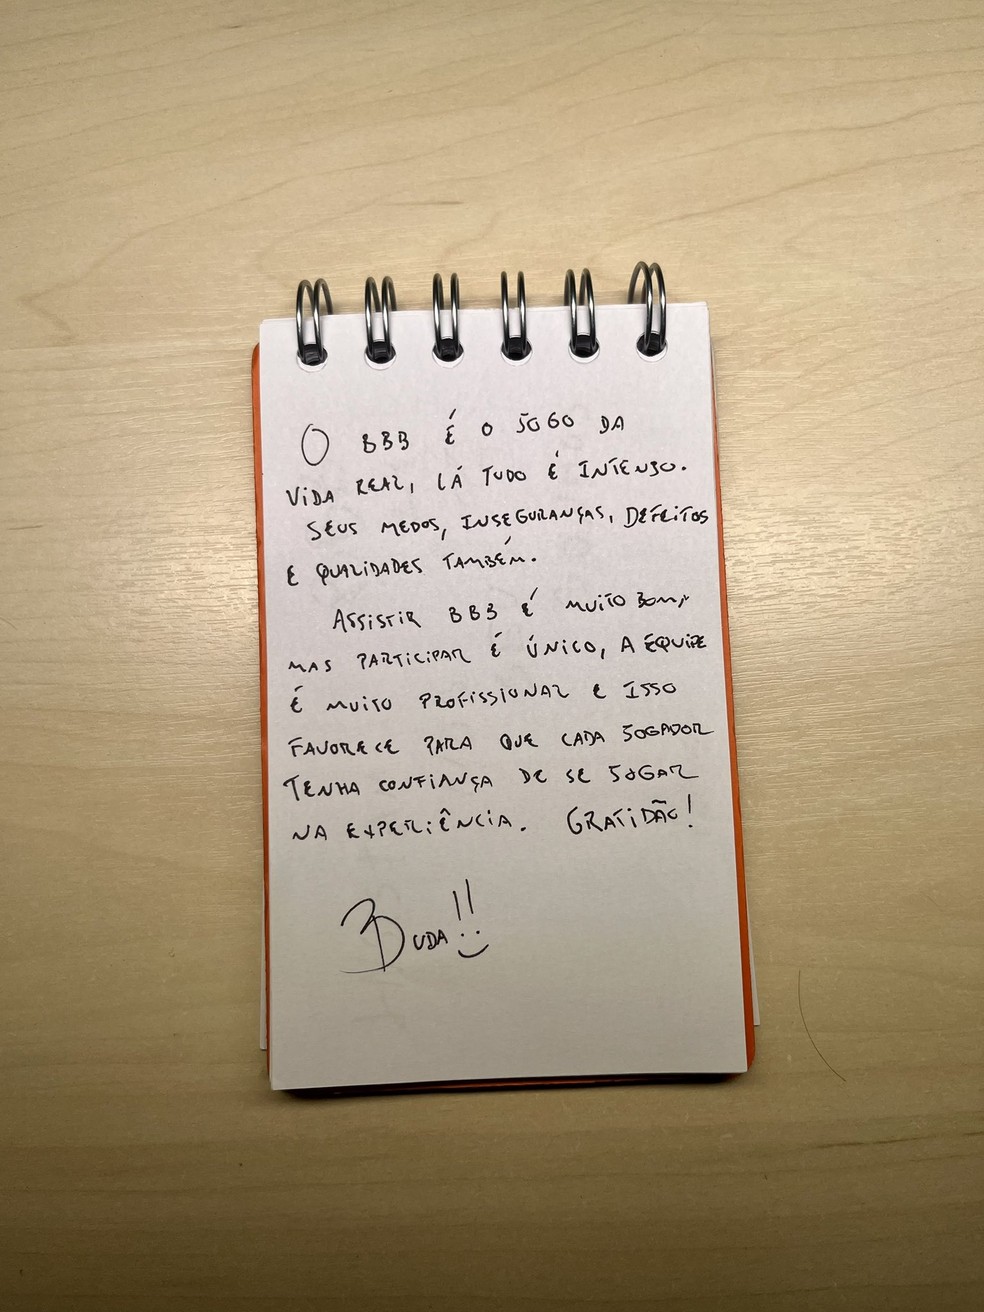 O BBB É O JOGO DA
VIDA REAL, LÁ TUDO É INTENSO.
SEUS MEDOS, INSEGURANÇAS, DEFEITOS
E QUALIDADES TAMBÉM.
ASSISTIR BBB É MUITO BOM,
MAS PARTICIPAR É ÚNICO, A EQUIPE
É MUITO PROFISSIONAL E ISSO
FAVORECE PARA QUE CADA JOGADOR
TENHA CONFIANÇA DE SE JOGAR
NA EXPERIÊNCIA. GRATIDÃO!
BUDA!!